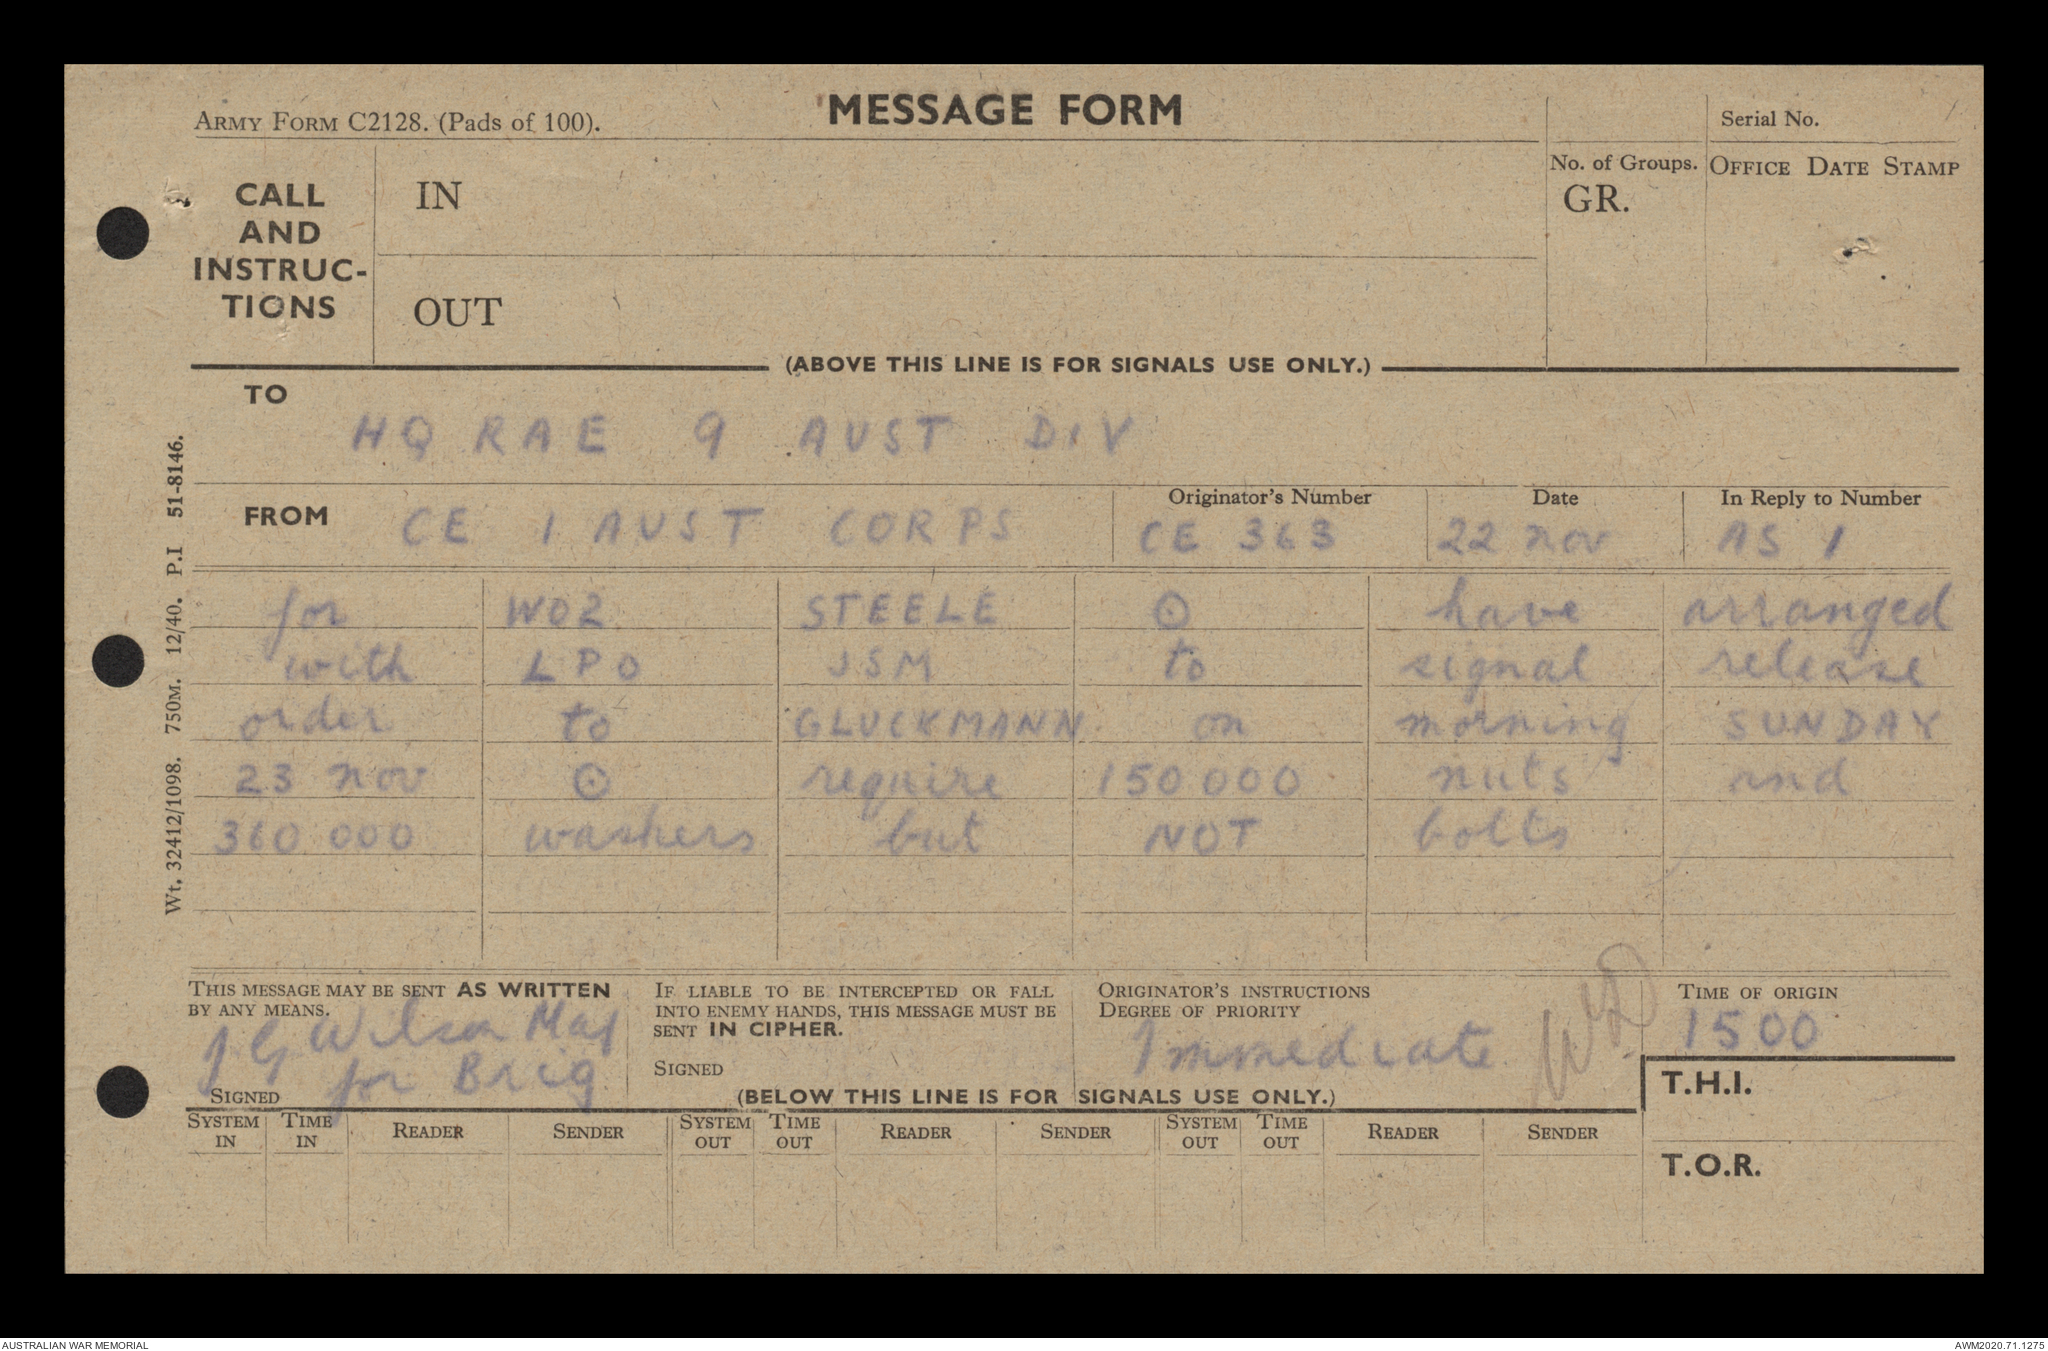 ARMY FORM C2128. (Pads of 100).
MESSAGE FORM
Serial No.
CALL AND INSTRUC-TIONS
IN
OUT
No. of Groups.
GR.
OFFICE DATE STAMP
(ABOVE THIS LINE IS FOR SIGNALS USE ONLY.)
TO
HQ RAE 9 AUST DIV
FROM CE 1 AUST CORPS
Originator's Number
CE 363
Date
22 nov
In Reply to Number
AS 1
for WO2 STEELE ⊙ have arranged
with LPO JSM to signal release
order to GLUCKMANN on morning SUNDAY
23 nov ⊙ require 150 000 nuts and
360 000 washers but NOT bolts
THIS MESSAGE MAY BE SENT AS WRITTEN
BY ANY MEANS.
J G Wilson Maj
for Brig
SIGNED
IF LIABLE TO BE INTERCEPTED OR FALL
INTO ENEMY HANDS, THIS MESSAGE MUST BE
SENT IN CIPHER.
SIGNED
ORIGINATOR'S INSTRUCTIONS
DEGREE OF PRIORITY
Immediate
TIME OF ORIGIN
1500
T.H.I.
T.O.R.
(BELOW THIS LINE IS FOR SIGNALS USE ONLY.)
SYSTEM IN TIME IN READER SENDER SYSTEM OUT TIME OUT READER SENDER SYSTEM OUT TIME OUT READER SENDER
Wt. 32412/1098. 750M. 12/40. P.I 51-8146.
AUSTRALIAN WAR MEMORIAL
AWM2020.71.1275